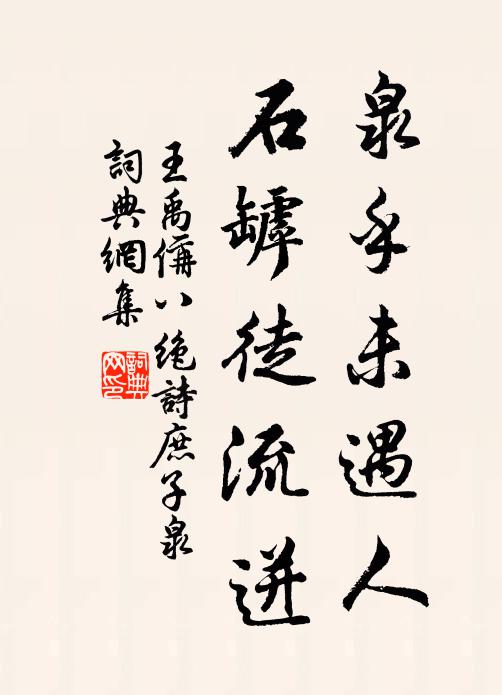 泉乎未遇人
石罅徒流迸
王禹偁八絶詩庶子泉
詞典網集
詞典網印